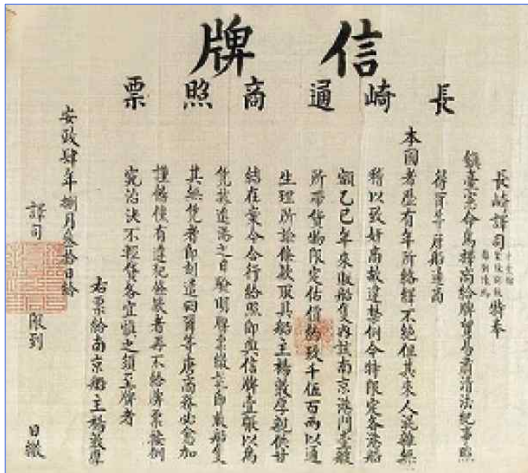 信牌
長崎通商照票
長崎譯司 特奉
鎮臺憲命為擇商給牌貿易肅清法紀事照
得爾等唐船通商
本國者歷有年所絡繹不絕但其來人混雜無
稽以致奸商故違禁例今特限定各港船
額乙巳年來販船隻內該南京港門壹艘
所帶貨物限定估價約玖千伍百兩以通
生理所諭條款取具船主楊敦厚親供甘
結在案今合行給照即與信牌壹張以為
憑據進港之日驗明牌票繳訖即收船隻
其無憑者即刻遣回爾等唐商務必愈加
謹飭倘有違犯條款者再不給牌票按例
究治決不輕貸各宜慎之須至牌者
右票給南京船主楊敦厚
安政肆年捌月叁拾日給
譯司 限到 日繳